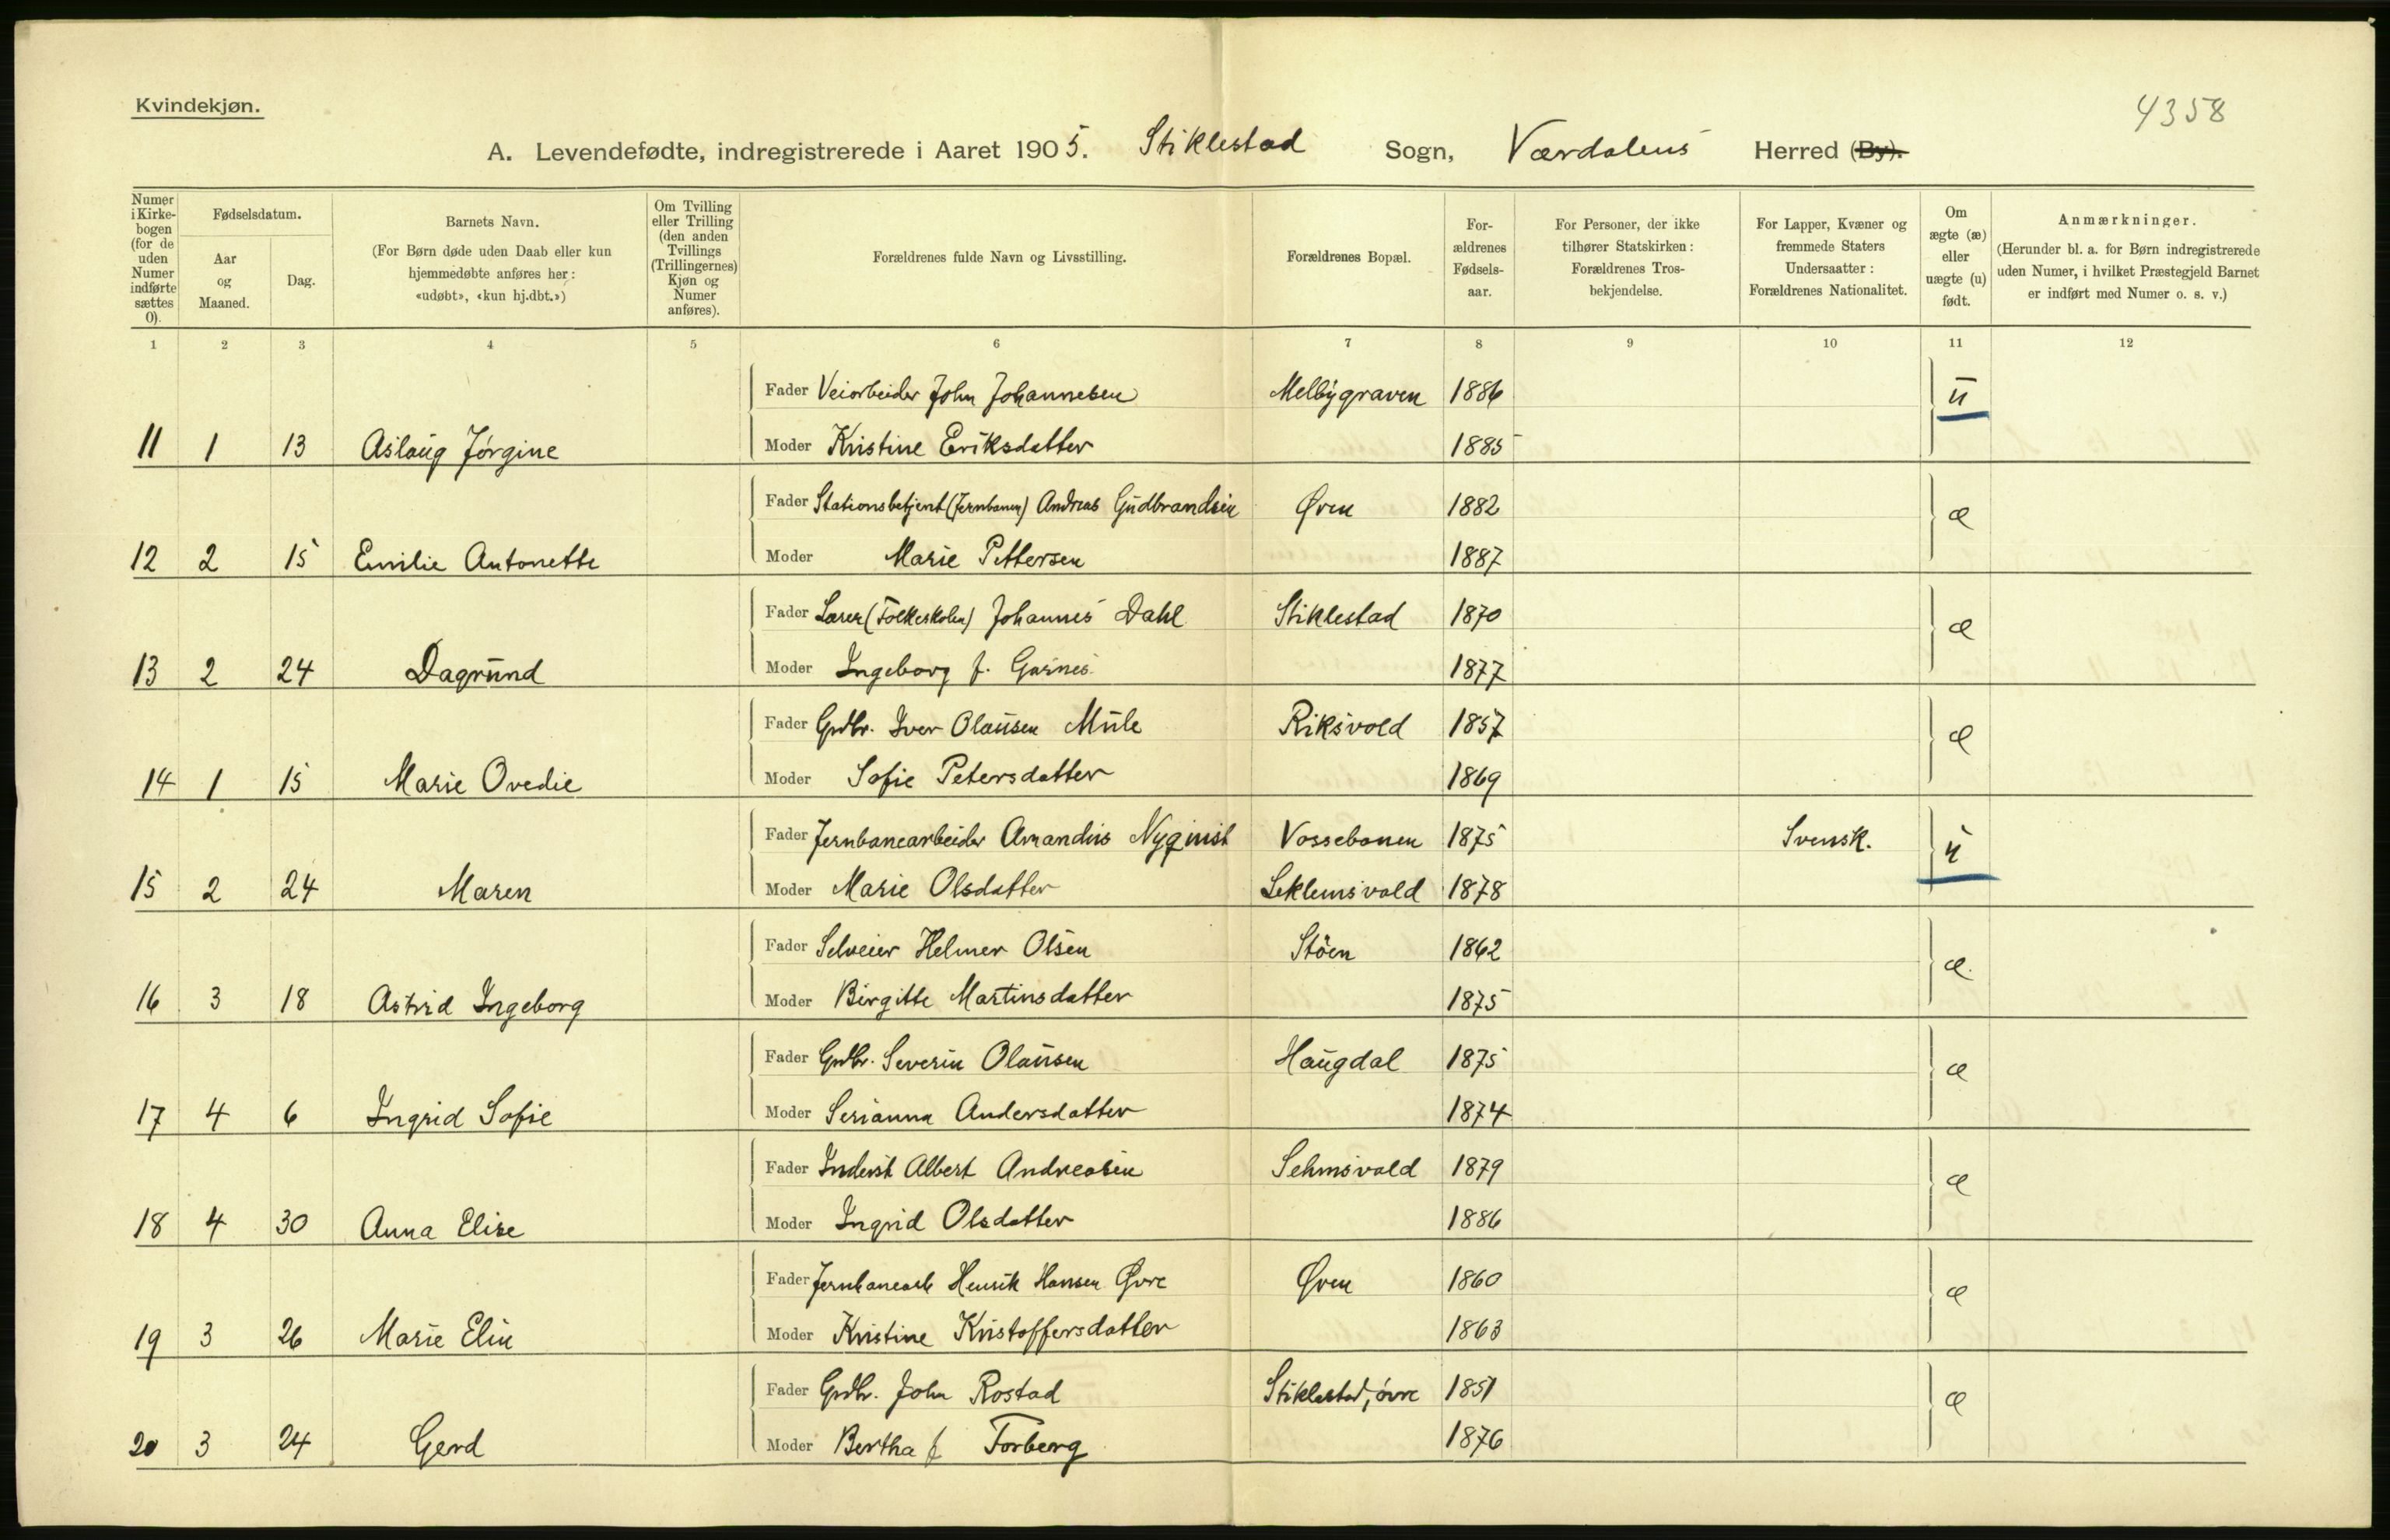 Kvindekjøn.
4358
A. Levendefødte, indregistrerede i Aaret 1905. Stiklestad Sogn, Værdalens Herred (By).
Numer i Kirkebogen (for de uden Numer indførte sættes 0).
Fødselsdatum.
Aar og Maaned.
Dag.
Barnets Navn.
(For Børn døde uden Daab eller kun hjemmedøbte anføres her: «udøbt», «kun hj.dbt.»)
Om Tvilling eller Trilling (den anden Tvillings (Trillingernes) Kjøn og Numer anføres).
Forældrenes fulde Navn og Livsstilling.
Forældrenes Bopæl.
Forældrenes Fødselsaar.
For Personer, der ikke tilhører Statskirken: Forældrenes Trosbekjendelse.
For Lapper, Kvæner og fremmede Staters Undersaatter: Forældrenes Nationalitet.
Om ægte (æ) eller uægte (u) født.
Anmærkninger.
(Herunder bl. a. for Børn indregistrerede uden Numer, i hvilket Præstegjeld Barnet er indført med Numer o. s. v.)
1 2 3 4 5 6 7 8 9 10 11 12
Fader Veiarbeider John Johannesen Melbygraven 1886 u
11 1 13 Aslaug Jørgine Moder Kristine Eriksdatter 1885
Fader Stationsbetjent (Jernbanen) Andreas Gudbrandsen Øren 1882 æ
12 2 15 Emilie Antonette Moder Marie Pettersen 1887
Fader Lærer (Folkeskolen) Johannes Dahl Stiklestad 1870 æ
13 2 24 Dagrund Moder Ingeborg f. Garnes 1877
Fader Grdbr. Iver Olausen Mule Riksvold 1857 æ
14 1 15 Marie Ovedie Moder Sofie Petersdatter 1869
Fader Jernbanearbeider Amandus Nyqvist Vossebanen 1875 Svensk. u
15 2 24 Maren Moder Marie Olsdatter Leklemsvald 1878
Fader Selveier Helmer Olsen Stöen 1862 æ
16 3 18 Astrid Ingeborg Moder Birgitte Martinsdatter 1875
Fader Grdbr. Severin Olausen Haugdal 1875 æ
17 4 6 Ingrid Sofie Moder Serianna Andersdatter 1874
Fader Inderst Albert Andreasen 1879 æ
18 4 30 Anna Elise Moder Ingrid Olsdatter 1886
Fader Jernbanearb Henrik Hansen Øvre Øren 1860 æ
19 3 26 Marie Elin Moder Kristine Kristoffersdatter 1863
Fader Grdbr. John Rostad Stiklestad, övre 1851 æ
20 3 24 Gerd Moder Bertha f Forberg 1876